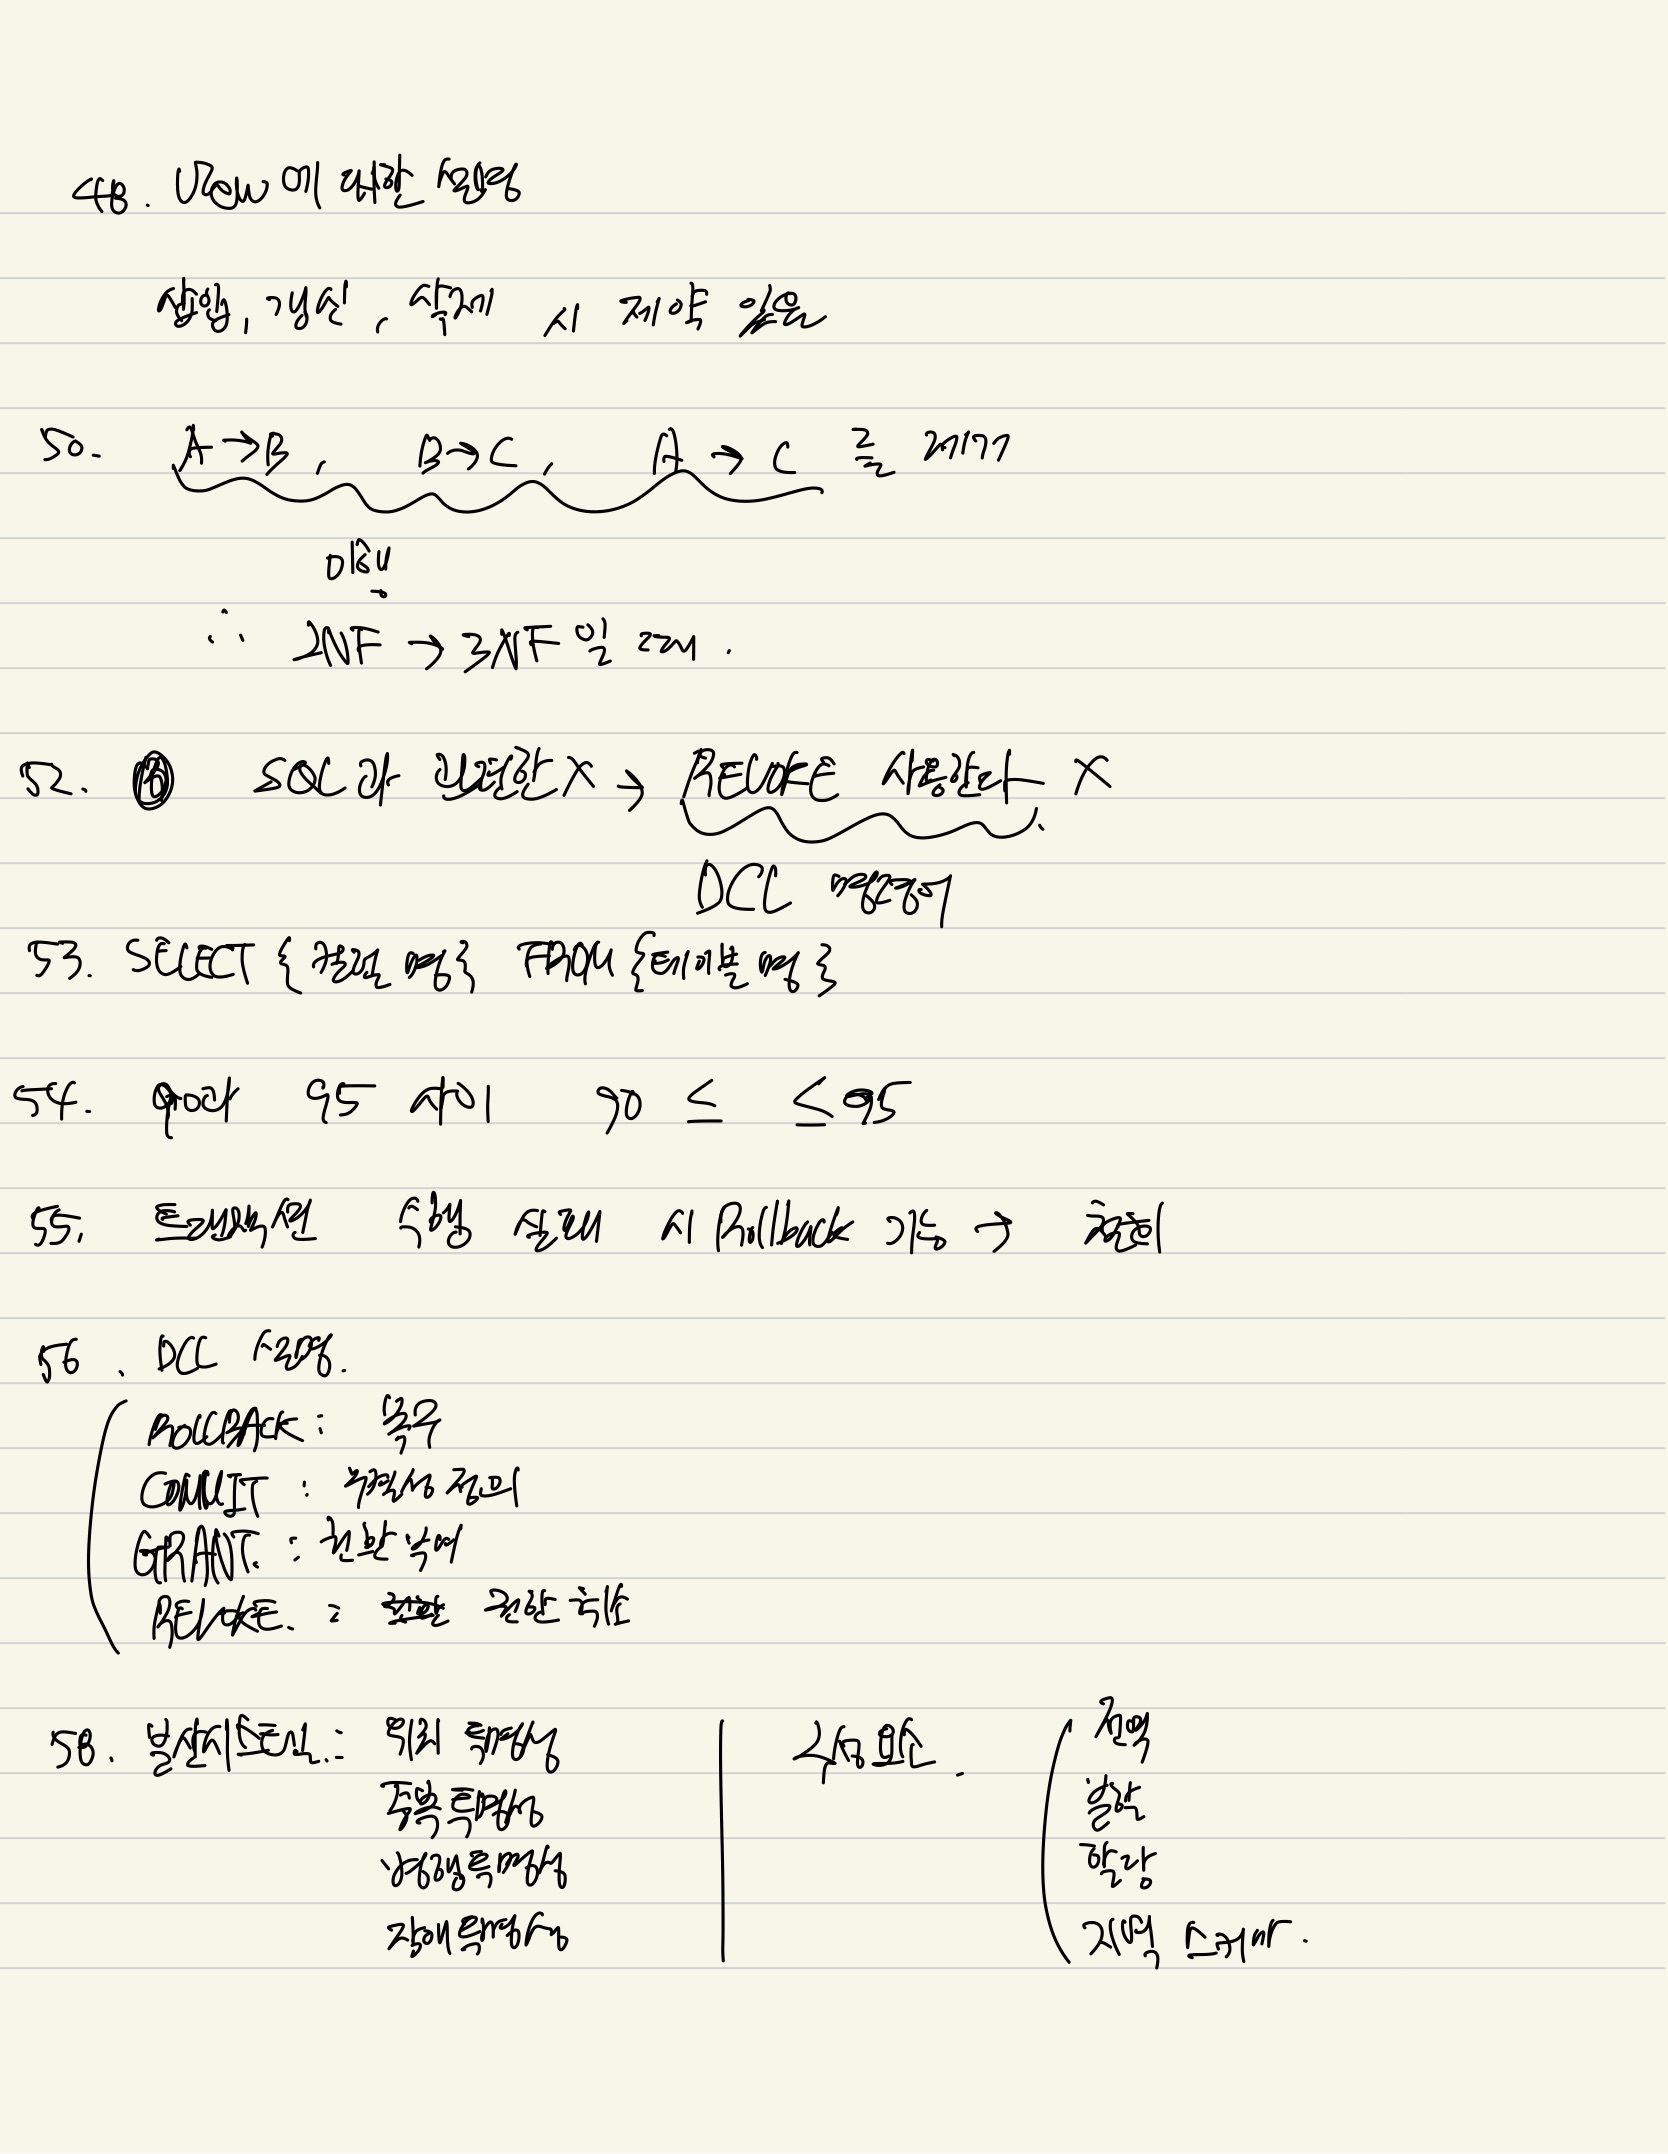 48. View에 대한 설명
삽입, 갱신, 삭제 시 제약 있음
50. A→B, B→C, A→C 를 제거
이행
∴ 2NF → 3NF 일 때.
52. SQL과 관련한 X → REVOKE 사용한다 X
DCL 명령어
53. SELECT {컬럼 명} FROM {테이블 명}
54. 90과 95 사이 90 ≤ ≤ 95
55. 트랜잭션 수행 실패 시 Rollback 가능 → 철회
56. DCL 설명.
ROLLBACK : 복구
COMMIT : 무결성 정의
GRANT. : 권한 부여
REVOKE. : 권한 취소
58. 분산시스템.: 위치 투명성 | 구성요소. 전역
중복 투명성 분할
병행투명성 할당
장애투명성 지역 스키마.